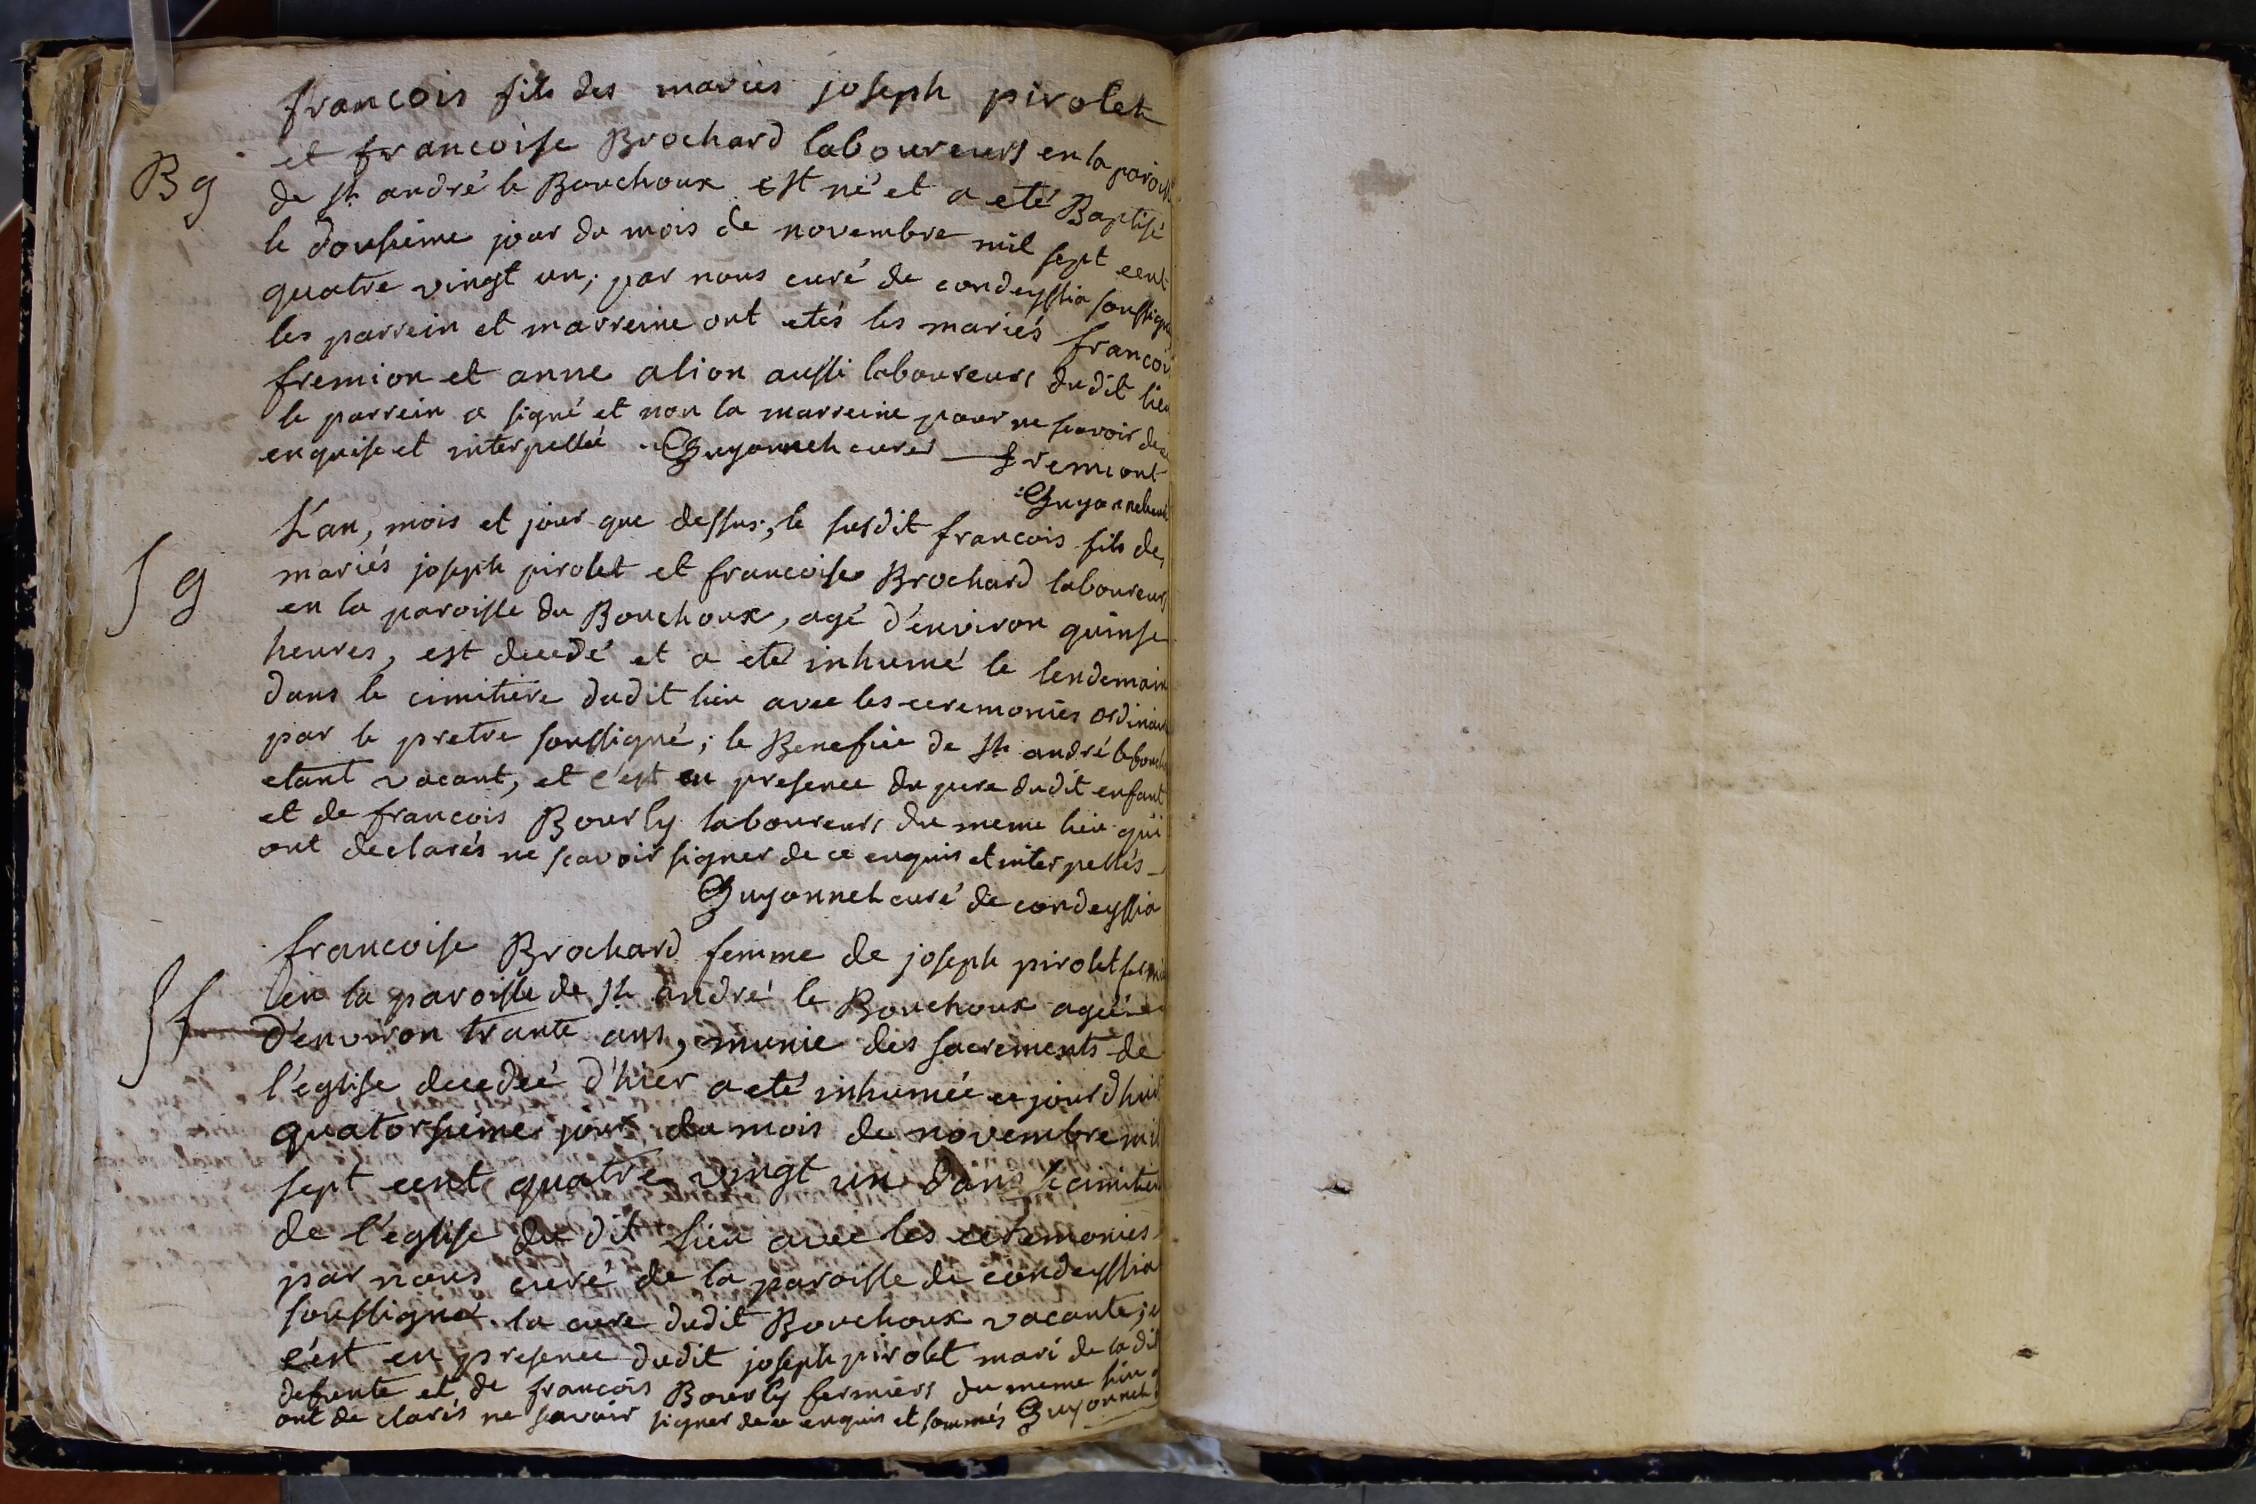 francois fils des mariés joseph pirolet
et francoise Brochard laboureurs en la paroisse
B g
de st andré le Bouchoux est né et a eté Baptisé
le dousieme jour du mois de novembre mil sept cent
quatre vingt un; par nous curé de condeyssia soussigné
les parrein et marreine ont etés les mariés francois
fremion et anne alion aussi laboureurs dudit lieu
le parrein a signé et non la marreine pour ne scavoir de ce
enquise et interpellée Guyonnet curé fremiont
Guyonnet curé
L'an, mois et jour que dessus, le susdit francois fils des
S g
mariés joseph pirolet et francoise Brochard laboureurs
en la paroisse du Bouchoux, agé d'environ quinse
heures, est decedé et a eté inhumé le lendemain
dans le cimitiere dudit lieu avec les ceremonies ordinaires
par le pretre soussigné; le Benefice de st andré le bouchoux
etant vacant, et c'est en presence du pere dudit enfant
et de francois Bourly laboureurs du meme lieu qui
ont declarés ne scavoir signer de ce enquis et interpellés
Guyonnet curé de condeyssia
francoise Brochard femme de joseph pirolet fermier
S f
en la paroisse de st andré le Bouchoux agée
d'environ trante ans, munie des sacrements de
l'eglise decedée d'hier a eté inhumée ce jourd'hui
quatorsieme jour du mois de novembre mil
sept cent quatre vingt un dans le cimitiere
de l'eglise du dit lieu avec les ceremonies
par nous curé de la paroisse de condeyssia
soussigné la cure dudit Bouchoux vacante,
c'est en presence dudit joseph pirolet mari de la dit
defunte et de francois Bourly fermiers du meme lieu
ont declarés ne scavoir signer de ce enquis et sommés Guyonnet